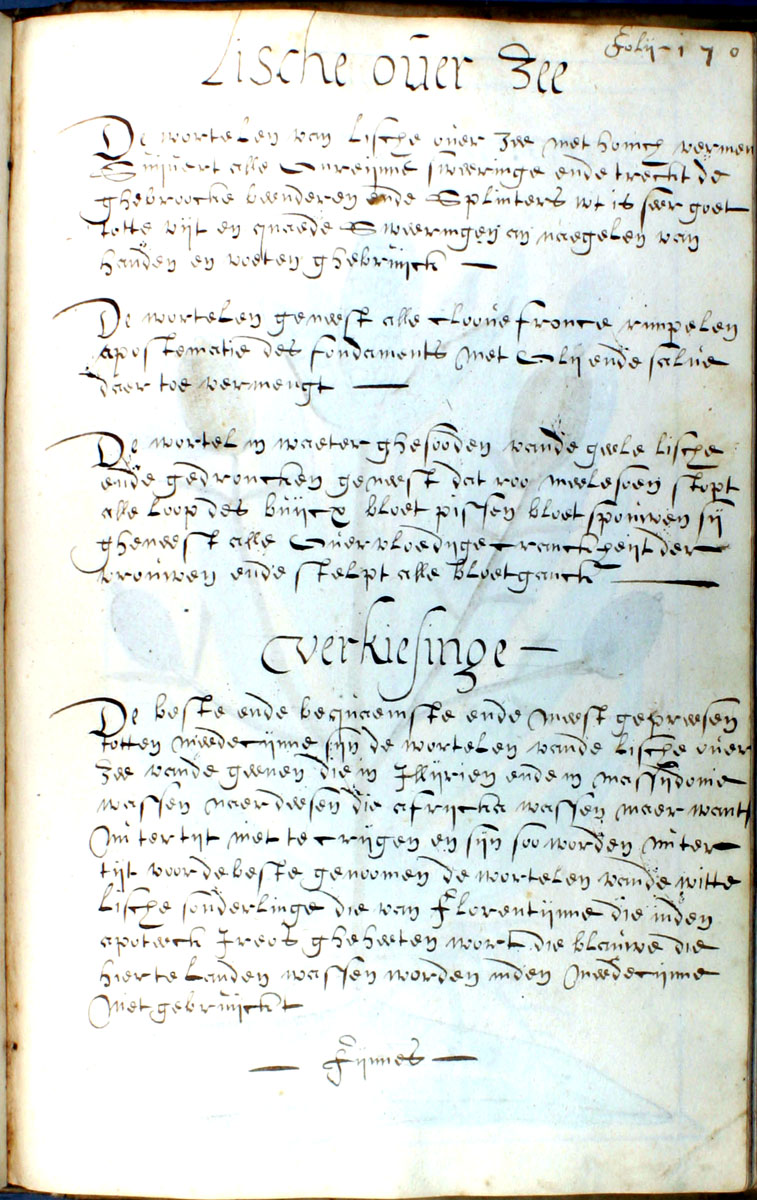 Folij 170
Lische over Zee
De wortelen van lische over zee met honich vermen
Suijvert alle Onreijnne sweeringe ende treckt de
ghebroocke beenderen ende Splinters wt is seer goet
totte vijt en quaede Sweeringen an naegelen van
handen en voeten ghebruijckt —
De wortelen geneest alle cloove fronce rimpelen
apostematie des fondaments met Olij ende salve
daer toe vermengt —
De wortel in waeter ghesooden vande geele lische
ende gedroncken geneest dat roo meelesoen stopt
alle loop des buijcx bloet pissen bloet spouwen sij
gheneest alle Overvloedijge cranckheijt der
vrouwen ende stelpt alle bloetganck —
Verkiesinge —
De beste ende bequaemste ende meest gepreesen
totten medecijnne sijn de wortelen vande lische over
zee vande geenen die in Illijrien ende in massijdonie
wassen naer deesen die afrijcka wassen maer want
in ter tijt niet te crijgen en sijn soo worden in ter
tijt voor de beste genoomen de wortelen vande witte
lische sonderlinge die van Florentijnne die inden
apoteeck Ireos gheheeten wort die blauwe die
hier te landen wassen worden inden medecijnne
niet gebruijckt
— Fijnnes —